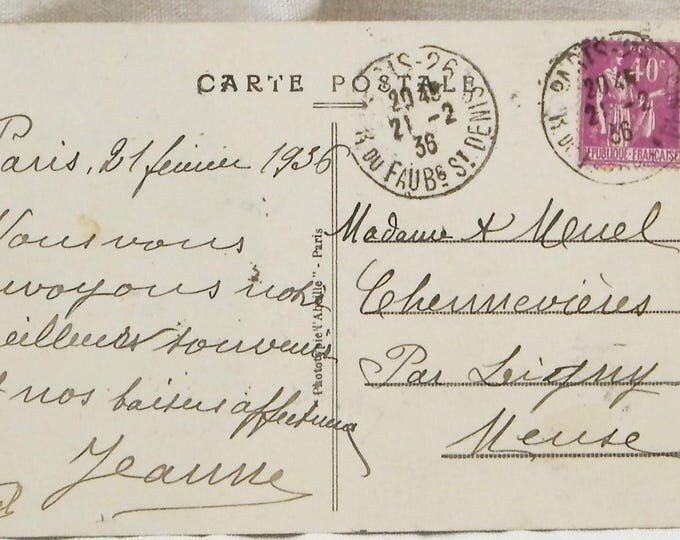 CARTE POSTALE
Paris, 21 février 1936
Nous vous
envoyons notre
meilleurs souvenirs
et nos baisers affectueux
Jeanne
Phototypie "l'Abeille" - Paris
PARIS-25
20 45
21 -2
36
R. DU FAUBG ST DENIS
PARIS-25
20 45
21 -2
36
R. DU
40c
REPUBLIQUE FRANÇAISE
Madame
Chennevières
Par Ligny
Meuse